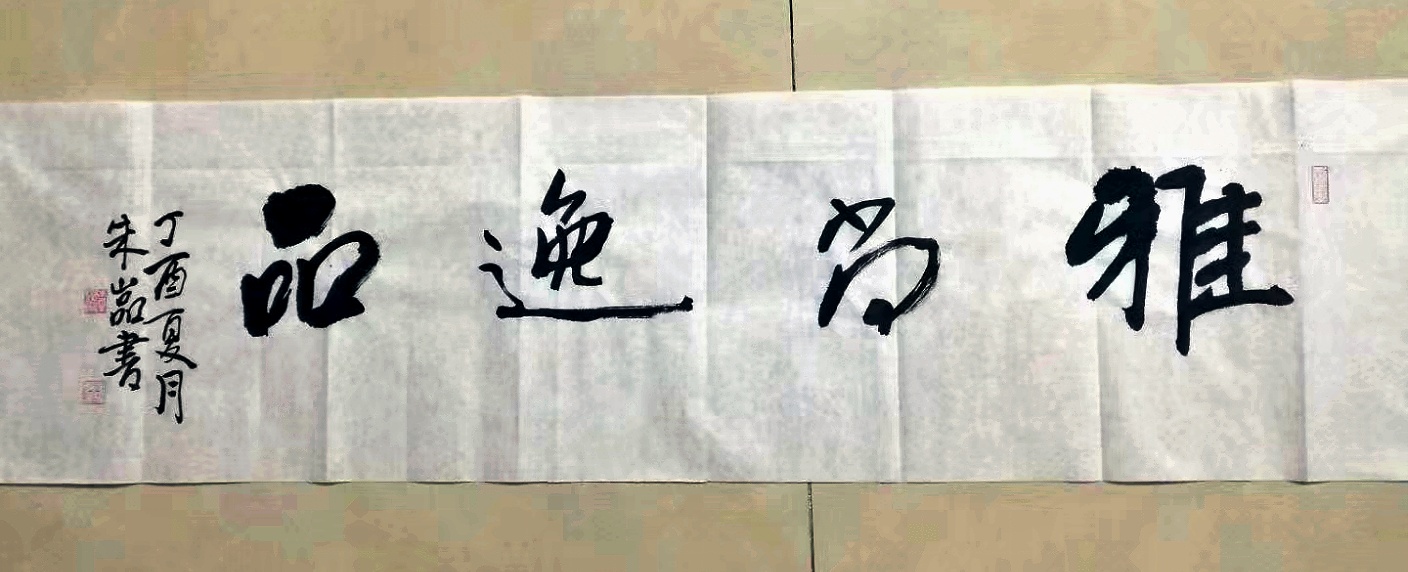 雅尚逸品
丁酉夏月
朱嵓書